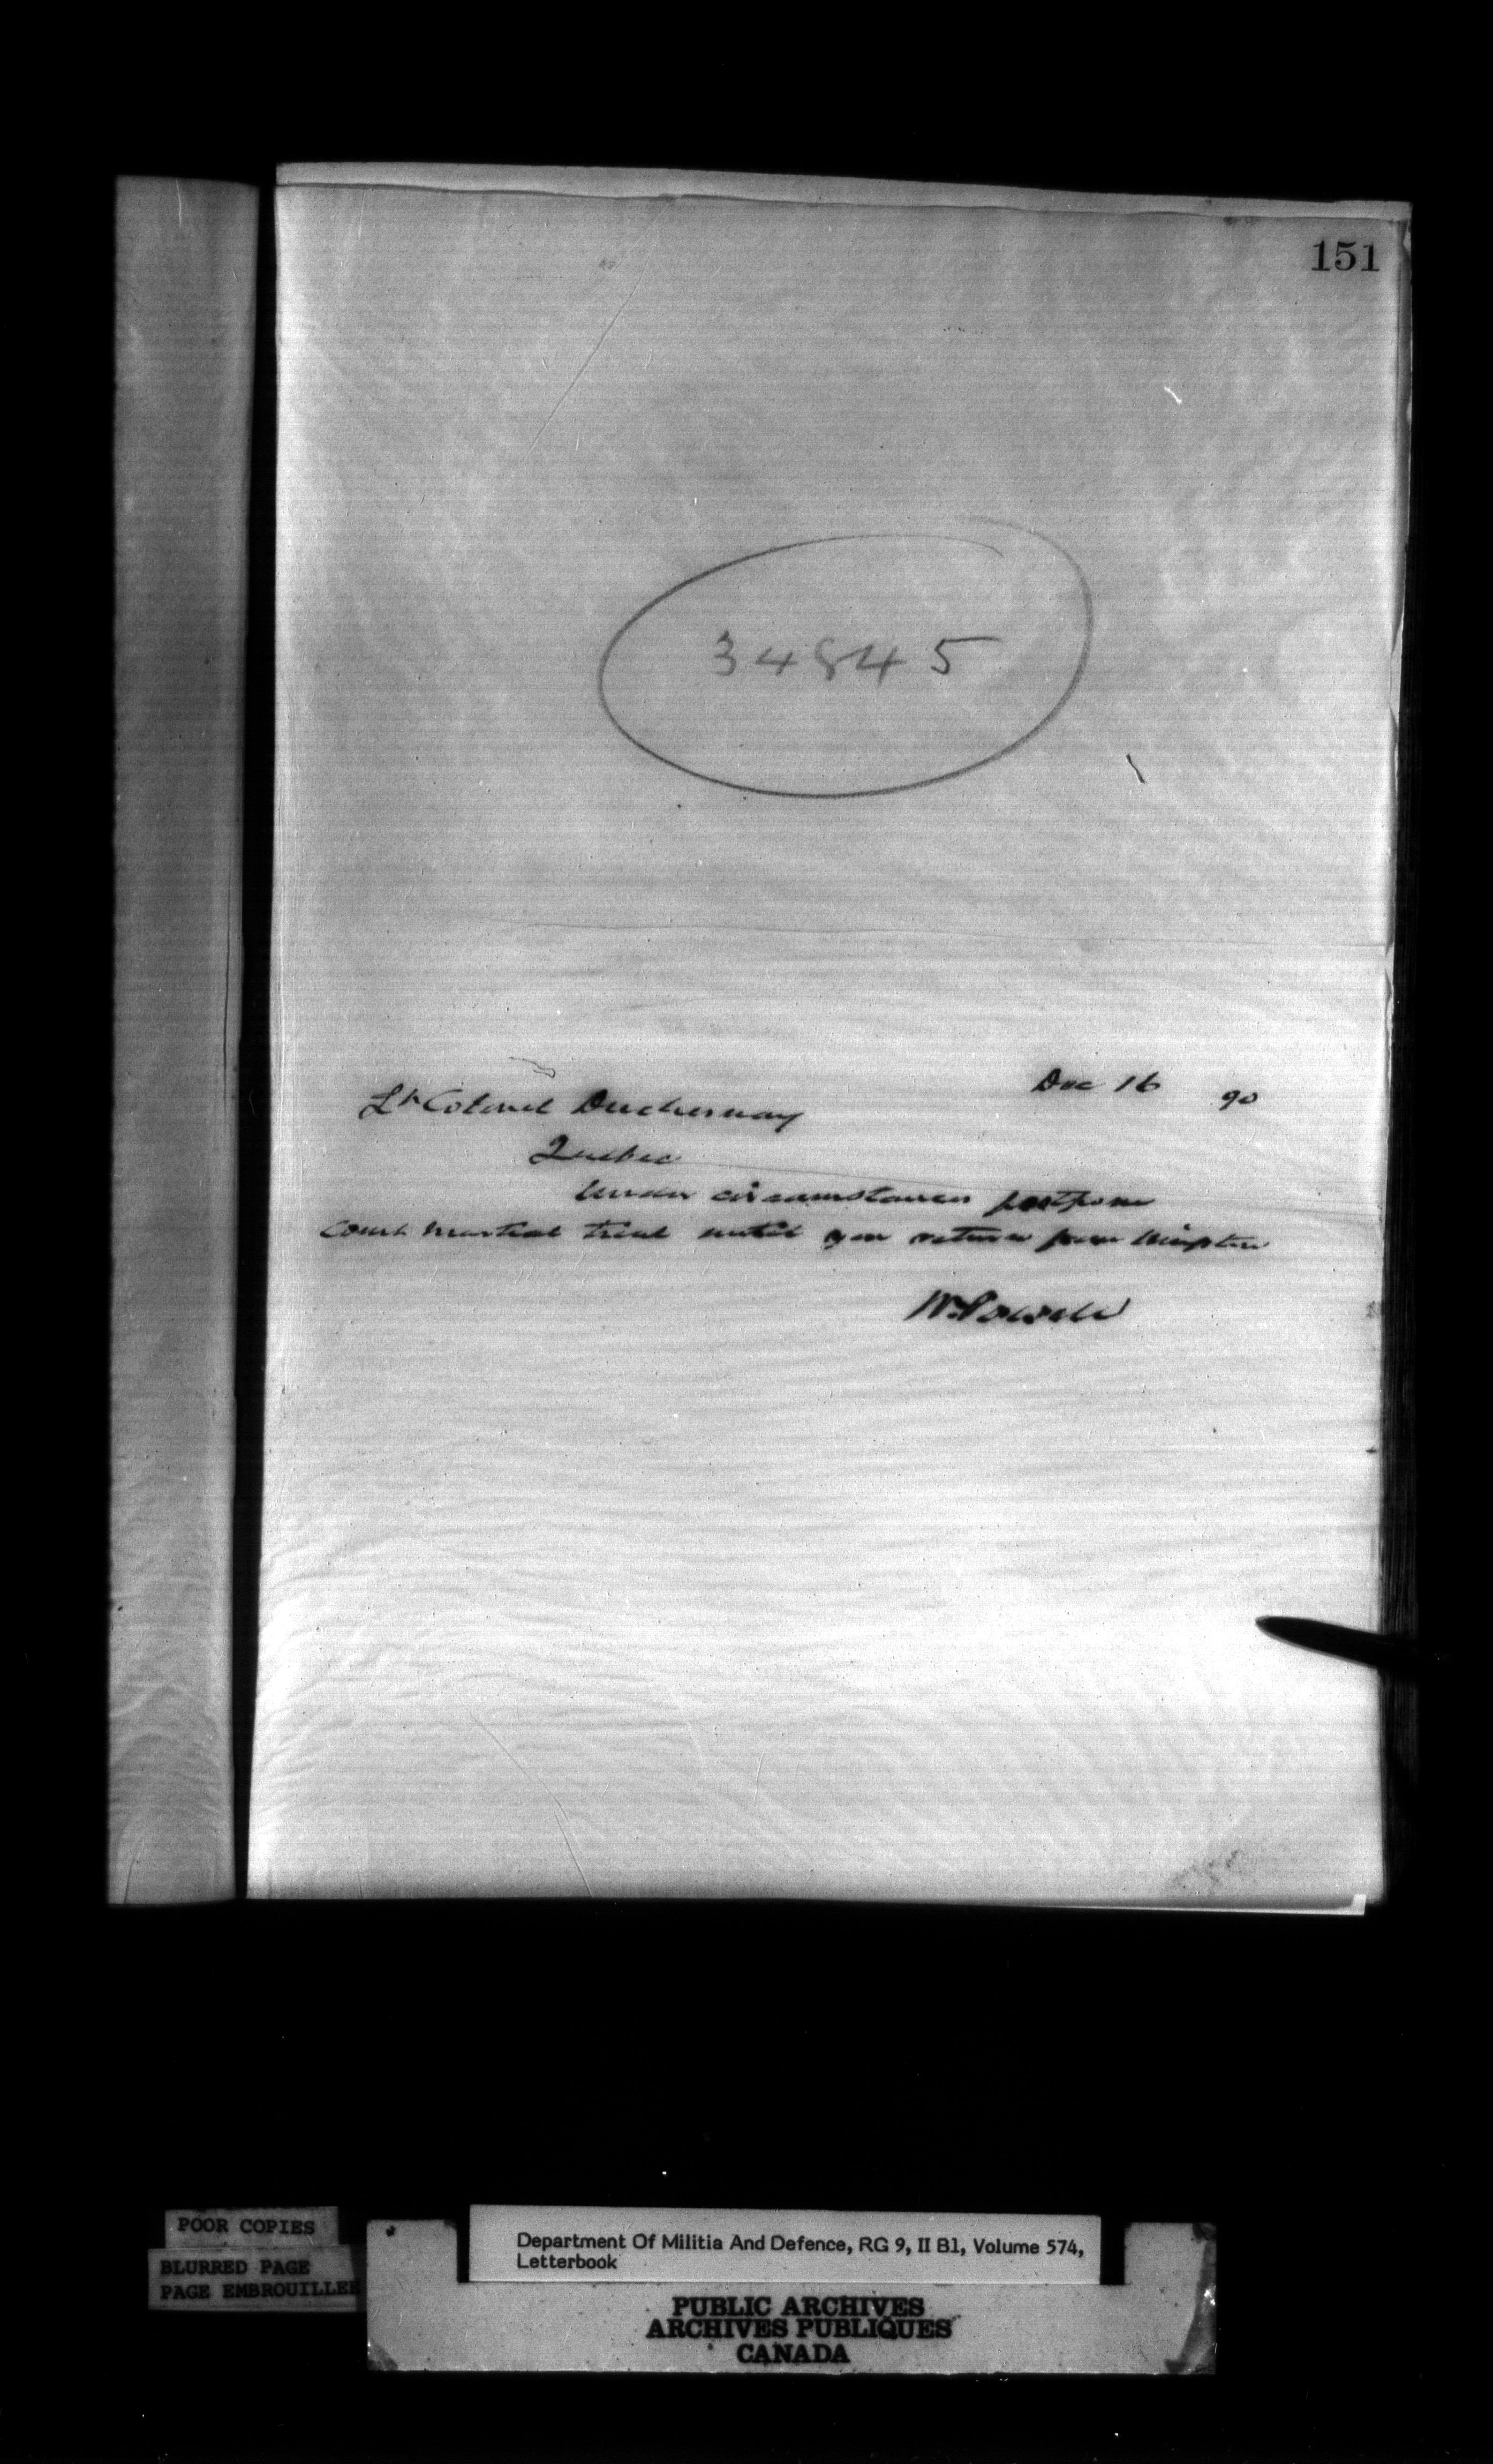 151
34845
Dec 16 90
Lt Colonel Duchesnay
Quebec
Under circumstances postpone
Court Martial trial until you return from
W. Powell
POOR COPIES
BLURRED PAGE
PAGE EMBROUILLEE
Department Of Militia And Defence, RG 9, II B1, Volume 574,
Letterbook
PUBLIC ARCHIVES
ARCHIVES PUBLIQUES
CANADA